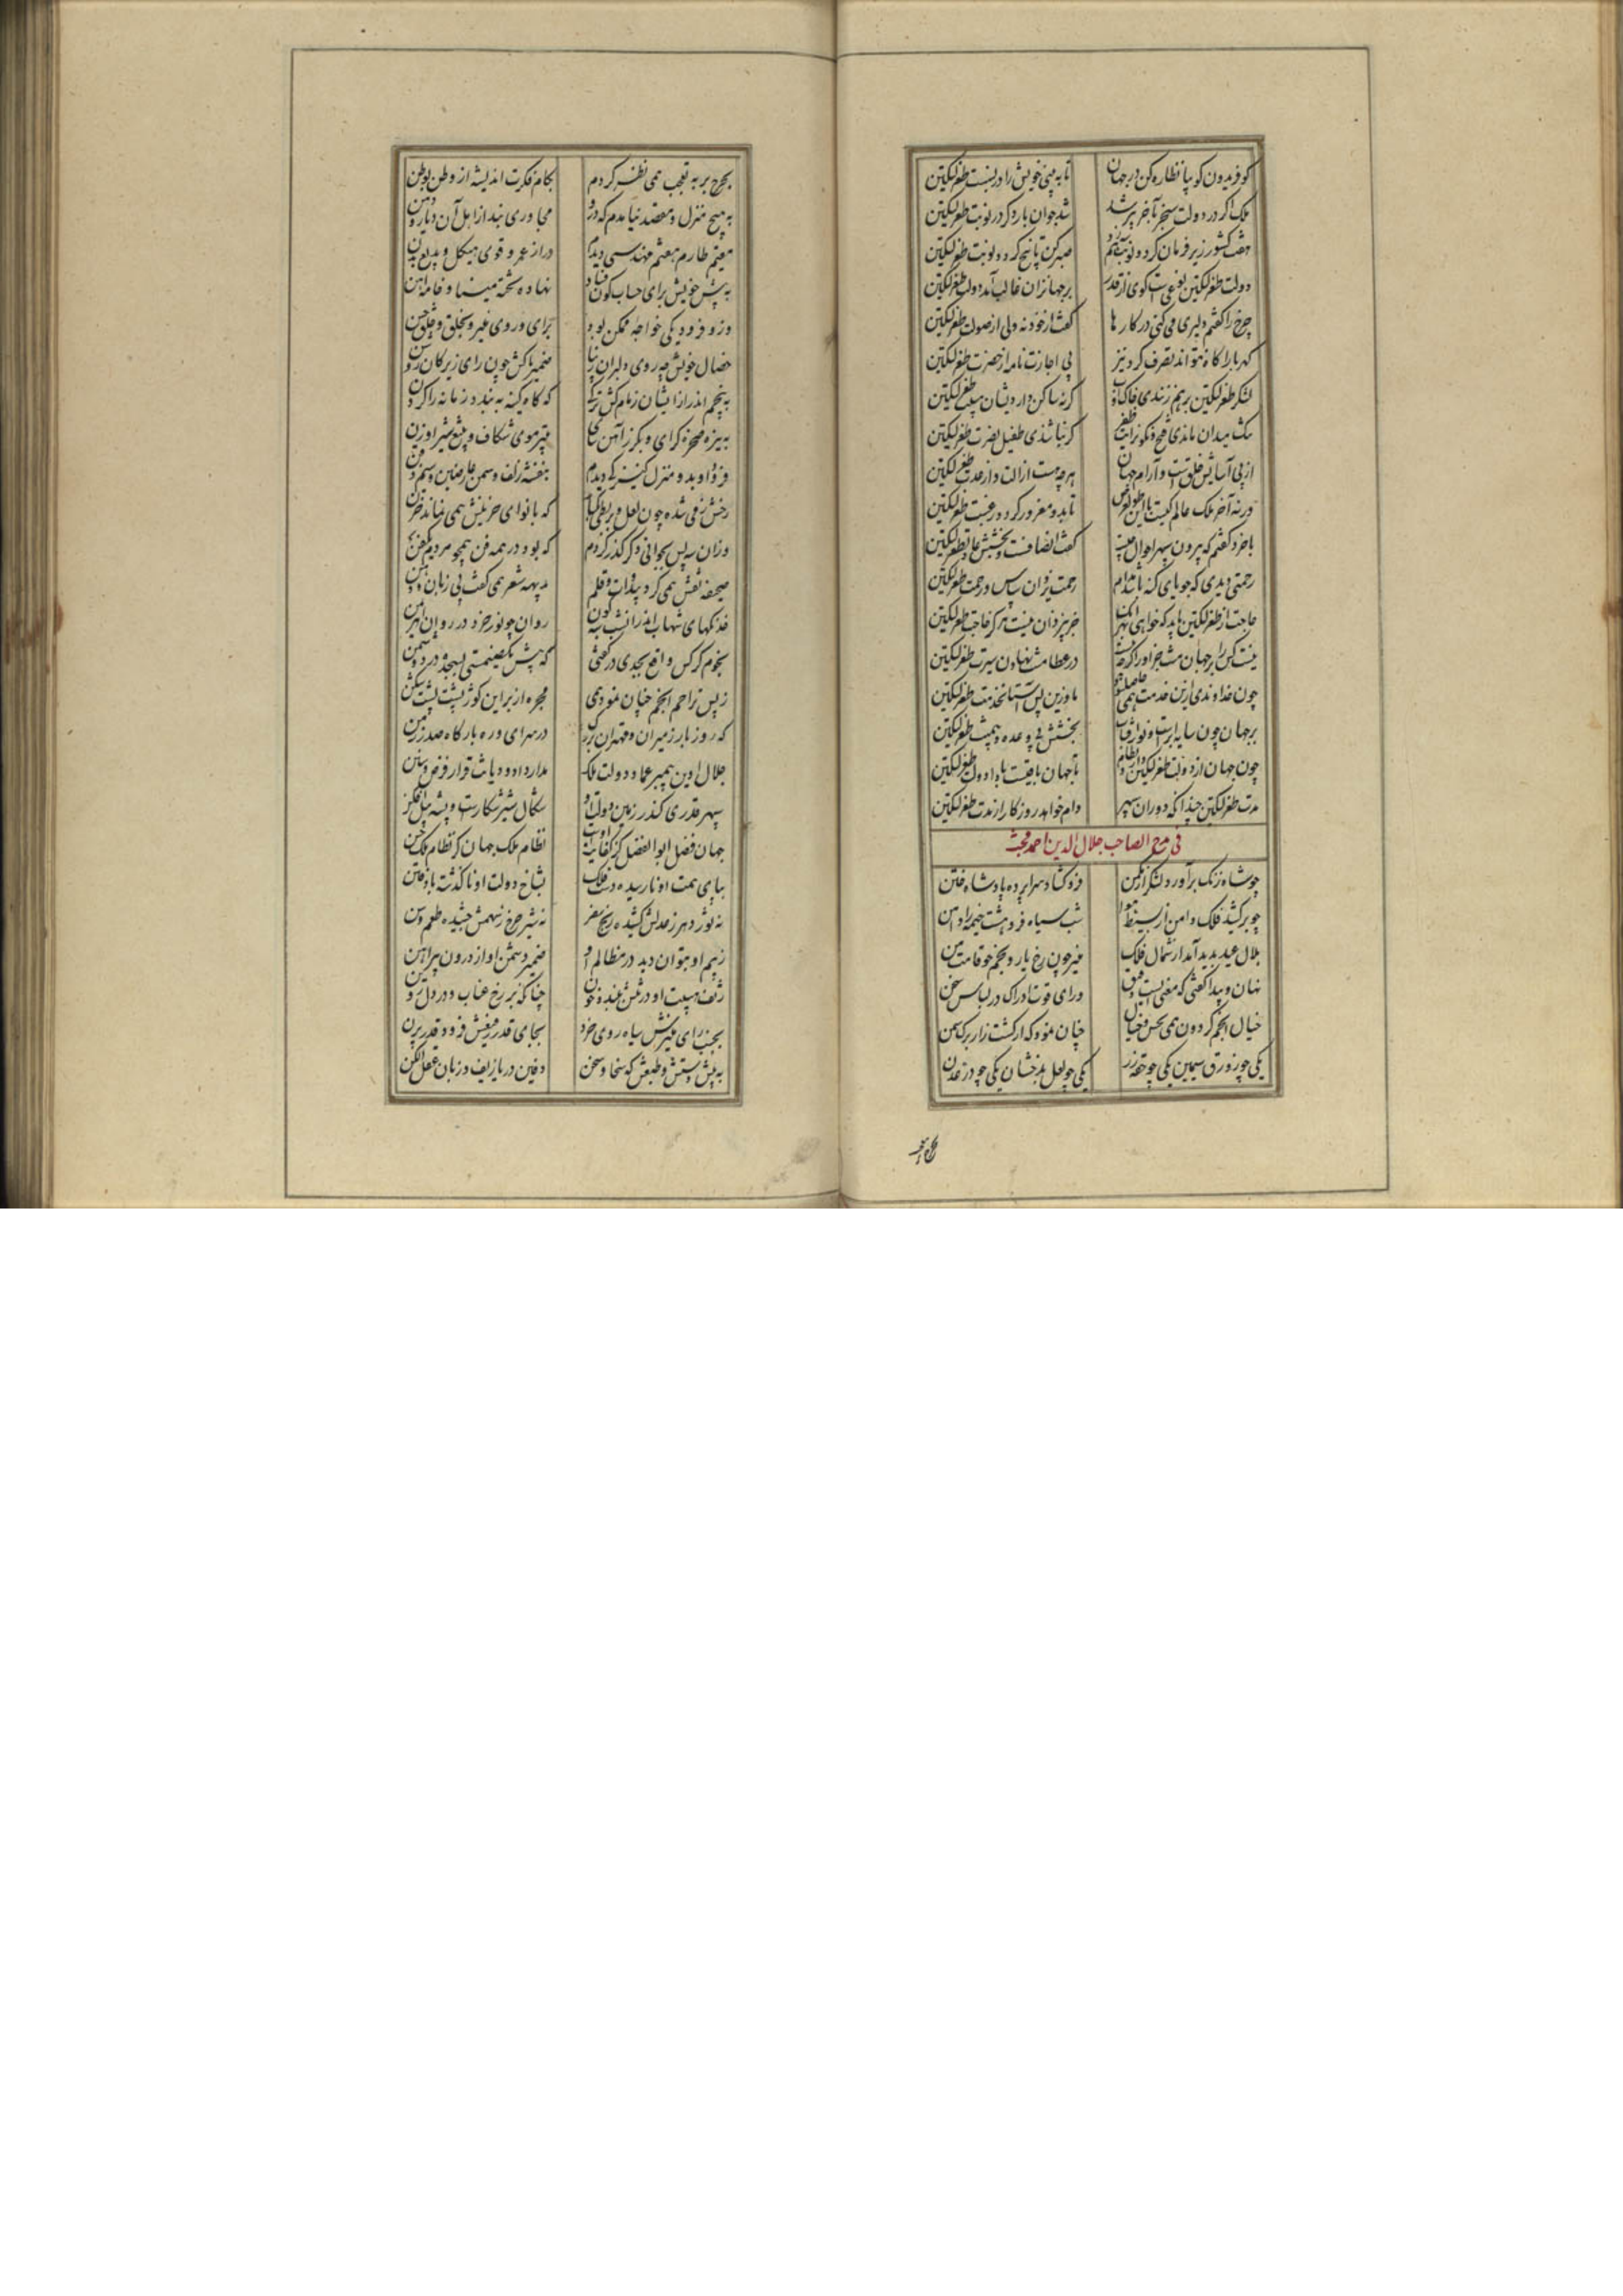 کو فریدون کو بیا نظاره کن در جهان
تا به بینی خویش را در نسبت طغرلتکین
ملک اگر در دولت سنجر بآخر پیر شد
شد جوان بار دگر در نوبت طغرلتکین
هفت کشور زیر فرمان کرد و نوبت
صبر کن تا پنج گردد نوبت طغرلتکین
دولت طغرلتکین نوعیست کوی از قدر
بر جهانزان غالب آمد دولت طغرلتکین
چرخ را گفتم دلیری می کنی در کارها
گفت از خود نه ولی از صولت طغرلتکین
کهربا را کاه نتواند تصرف کرد نیز
بی اجازت نامه از حضرت طغرلتکین
لشکر طغرلتکین برهم زنندی خاک و آب
گرنه ساکن داردیشان هیبت طغرلتکین
سنگ میدان ماندی فتح و نگون رایت ظفر
گر نباشندی طفیل نصرت طغرلتکین
از پی آسایش خلقست و آرام جهان
هر چه هست از الت و از عدت طغرلتکین
ورنه آخر ملک عالم کیست با این طول و عرض
تا بدو مغرور گردد رغبت طغرلتکین
با خرد گفتم که بیرون سپهر احوال چیست
گفت انصافست و بخشش عادت طغرلتکین
رحمتی دیدی که جویای گنه باشد مدام
رحمت یزدان شناس و رحمت طغرلتکین
حاجت از طغرلتکین باید که خواهی
جز به یزدان نیست هرگز حاجت طغرلتکین
نیست کس را بر جهان منت جز او را گرچه هست
در عطا منت نهادن سیرت طغرلتکین
چون خداوندی ازین خدمت همی حاصل شود
ما و زین پس آستان خدمت طغرلتکین
بر جهان چون سایه ابرست و نور آفتاب
بخشش بی وعده و بی منت طغرلتکین
چون جهان از دولت طغرلتکین دارد نظام
تا جهان باقیست بادا دولت طغرلتکین
مدت طغرلتکین چندانکه دوران سپهر
وام خواهد روزگار از مدت طغرلتکین
فی مدح الصاحب جلال الدین احمد
چو شاه زنگ برآورد لشکر از مکمن
فرو گشاد سراپرده پادشاه ختن
چو برکشید فلک دامن از بسیط هوا
شب سیاه فروهشت خیمه را دامن
هلال عید پدید آمد از شمال فلک
منیر چون رخ یار و بخم چو قامت من
نهان و پیدا گفتی که معنی ایست دقیق
ورای قوت ادراک در لباس سخن
خیال انجم گردون همی بحس و خیال
چنان نمود که از کشت زار برگ سمن
یکی چو زورق سیمین یکی چو حقه زر
یکی چو لعل بدخشان یکی چو در عدن
بچرخ بر به تعجب همی نظر کردم
بکام فکرت اندیشه از وطن بوطن
به هیچ منزل و مقصد نیامدم که درو
مجاوری نبد از اهل آن دیار و دمن
مقیم طارم هفتم مهندسی دیدم
دراز عمر و قوی هیکل و بدیع بدن
به پیش خویش برای حساب کون و فساد
نهاده تخته مینا و خامه آهن
وزو فرود یکی خواجه ممکن بود
برای و روی منیر و بخلق و خلق حسن
خصال خویش چو روی دلبران زیبا
ضمیر پاکش چون رای زیرکان روشن
به پنجم اندر ازیشان زمام کش ترکی
که گاه کینه ببندد زمانه را گردن
به نیزه صخره گرای و بگرز آهن خای
بتیر موی شکاف و بتیغ شیر اوژن
فرود او بدو منزل کنیزکی دیدم
بنفشه زلف و سمن عارضین و سیم ذقن
رخش زمی شده چون لعل و بربطی بکنار
که با نوای حزینش همی نماند حزن
وزان سپس بجوانی دگر گذر کردم
که بود در همه فن همچو مردم یک فن
صحیفه نقش همی کرد بی دوات و قلم
بدیهه شعر همی گفت بی زبان و دهن
خدنگهای شهاب اندران شب شبه گون
روان چو نور خرد در روان اهریمن
نجوم کرکس واقع بجدی در گفتی
که پیش یک صنمستی بسجده در دو شمن
ز بس تزاحم انجم چنان نمود همی
مجره از بر این کوژ پشت پشت شکن
که روز بار ز میران و مهتران بزرگ
در سرای و ره بارگاه صدر زمن
جلال دین پیمبر عماد دولت ملک
مدار داد و دیانت قرار فرض و سنن
سپهر قدری کندر زمین دولت او
شگال شیر شکارست و پشه پیل فکن
جهان فضل ابوالفضل کز کفایت اوست
نظام ملک جهان کز نظام ملک حسن
بپای همت او نارسیده دست فلک
بشاخ دولت او ناگذشته باد فتن
نه ثور دهر ز عدلش کشیده رنج سفر
نه شیر چرخ ز سهمش چشیده طعم وسن
ز بیم او بتوان دید در مظالم او
ضمیر دشمن او از درون پیراهن
ز تف هیبت او دشمنش ببندد خون
چنانکه بر رخ عناب و در دل روین
بجنب رای منیرش سیاه روی خرد
بجای قدر رفیعش فرود قدر پرن
به پیش دستش و طبعش که سخا و سخن
دفین دریا زیف و زبان عقل الکن